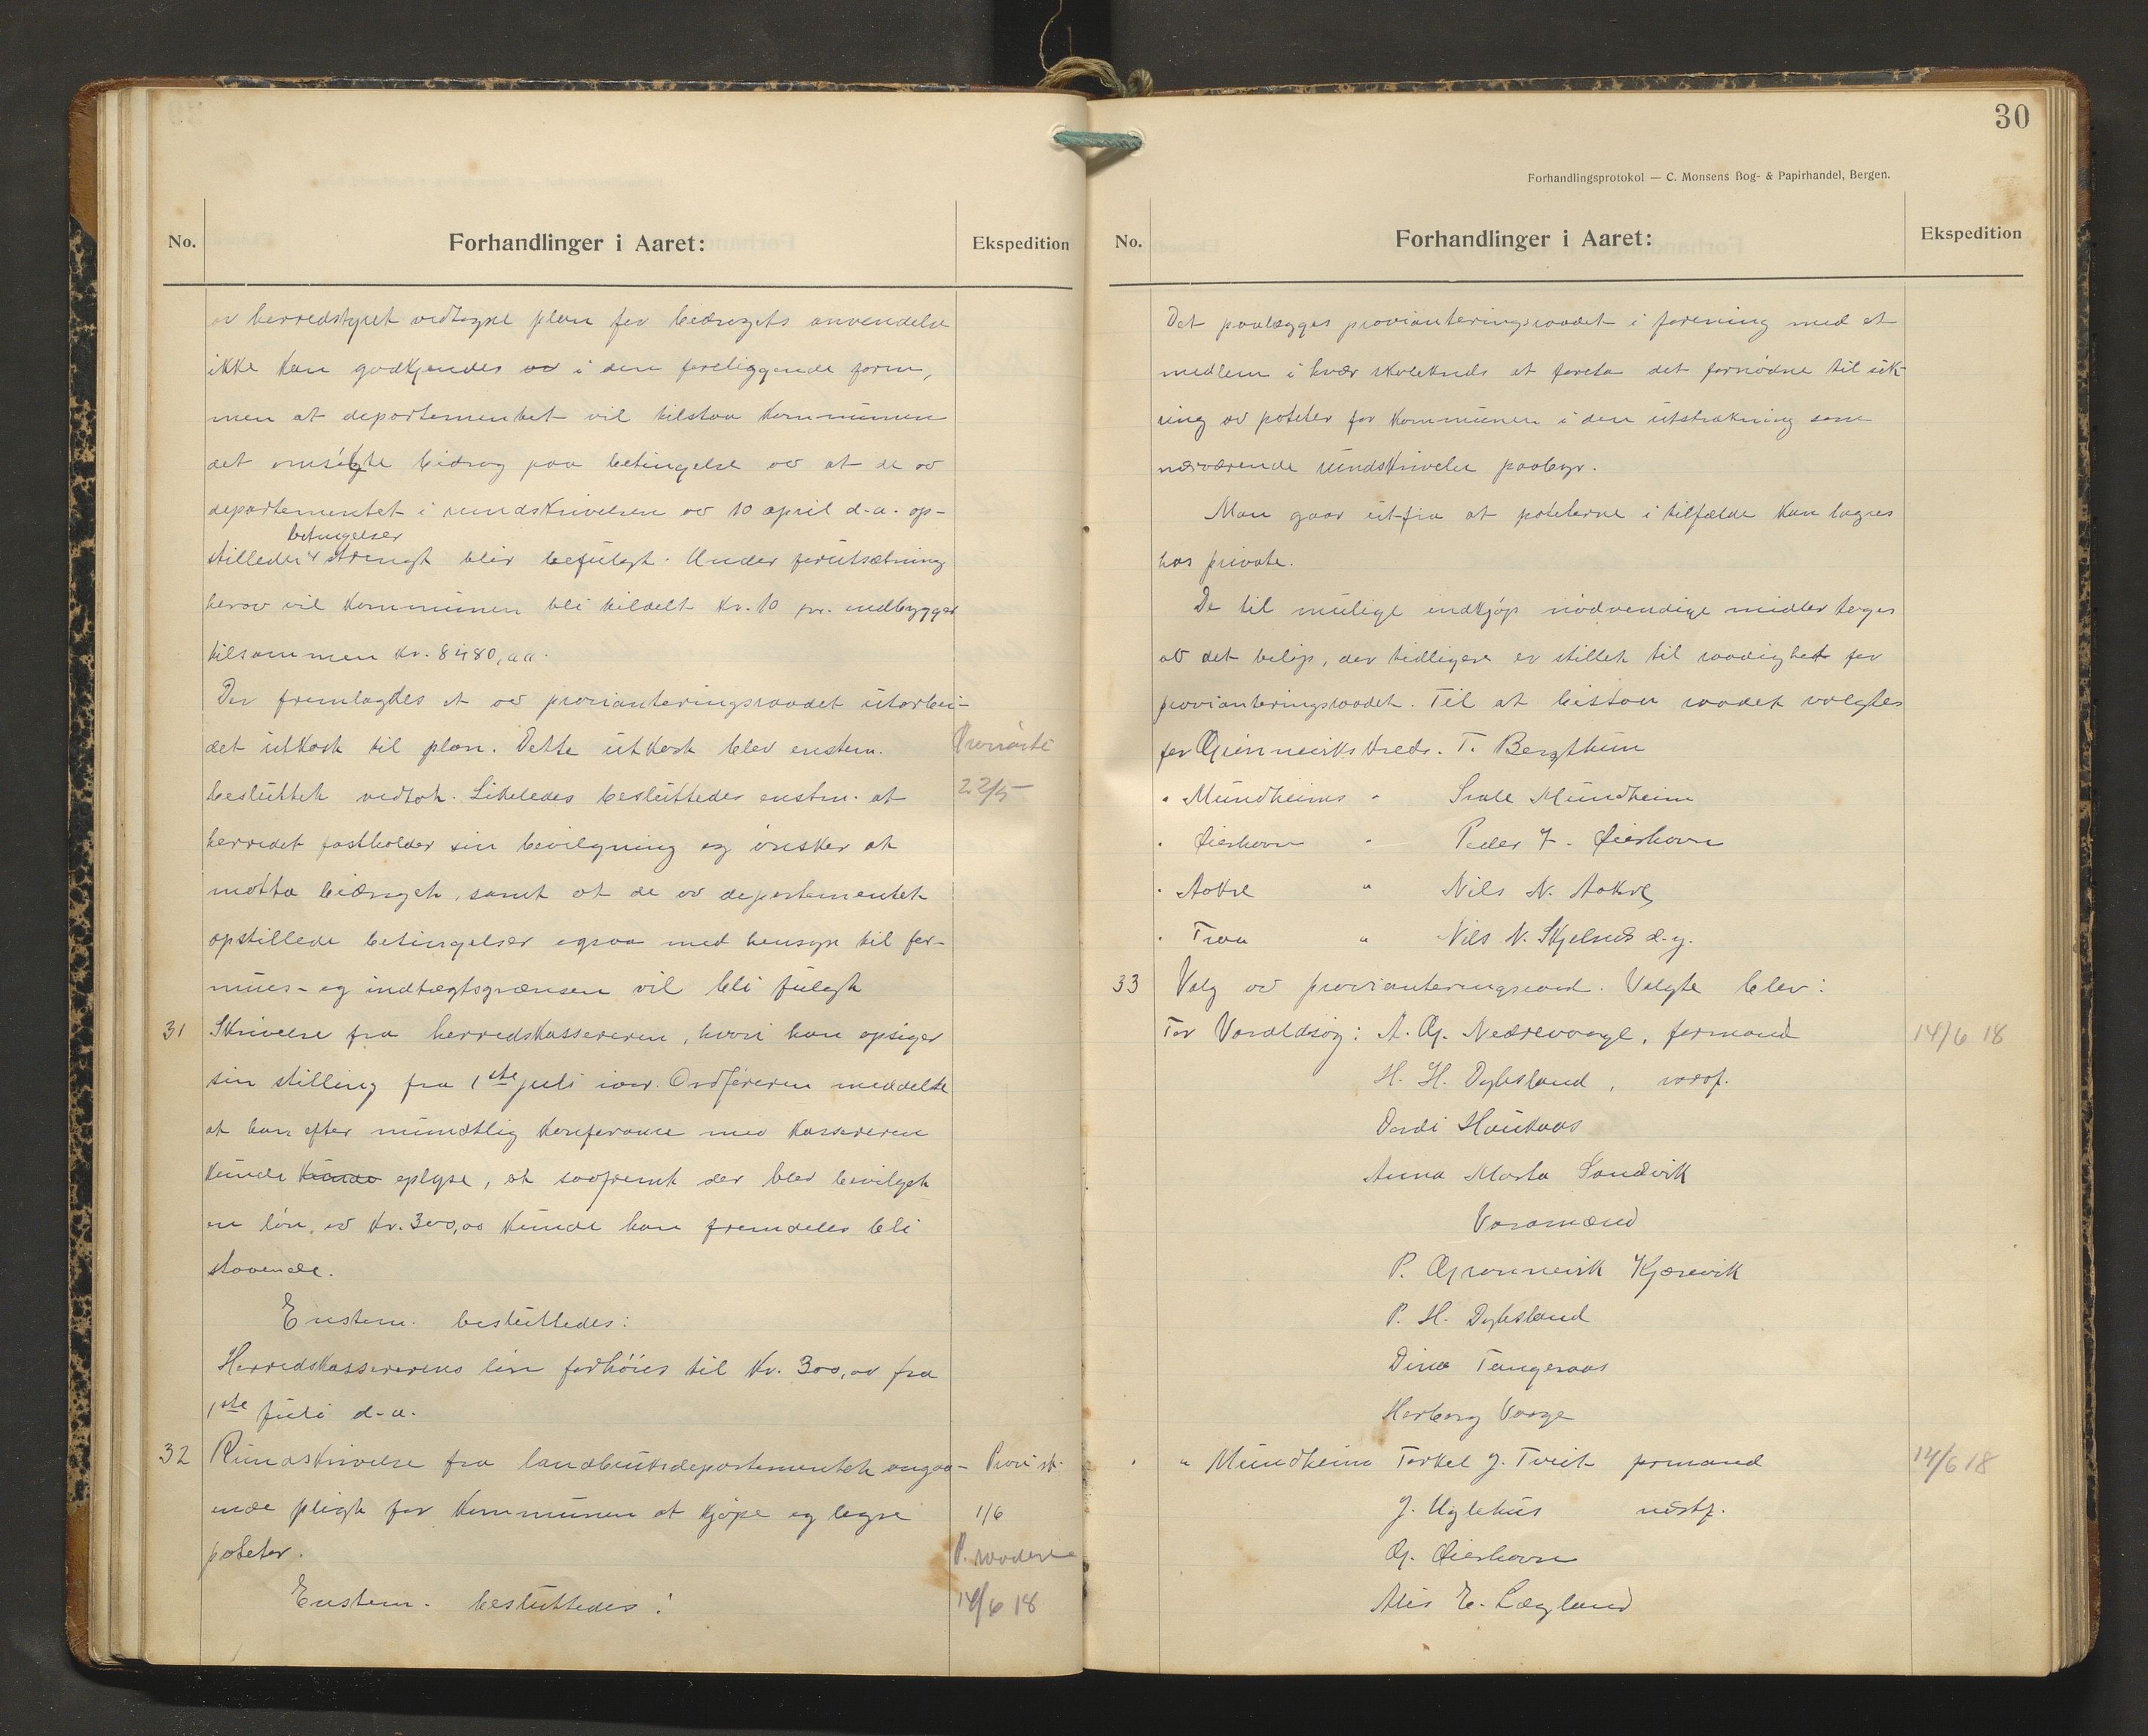 No.
Forhandlinger i Aaret:
Ekspedition
av herredstyret vedtagne plan for bidragets anvendelse
ikke kan godkjendes av i den foreliggende form,
men at departementet vil tilstaa kommunen
det omsøkte bidrag paa betingelse av at de av
departementet i rundskrivelsen av 10 april d.a. op-
betingelser
stillede strengt blir befulgt. Under forutsætning
herav vil kommunen bli tildelt kr. 10 pr. indbygger
tilsammen kr. 8480,00.
Der fremlagdes et av provianteringsraadet utarbei-
det utkast til plan. Dette utkast blev enstem.
besluttet vedtat. Likeledes besluttedes enstm. at
22/5
herredet fastholder sin bevilgning og ønsker at
motta bidraget, samt at de av departementet
opstillede betingelser ogsaa med hensyn til for-
mues- og indtægtsgrænsen vil bli fulgt
31 Skrivelse fra herredskassereren, hvori han opsiger
sin stilling fra 1ste juli iaar. Ordføreren meddelte
at han efter mundtlig konferance med kassereren
kunde kunde oplyse, at saafremt der blev bevilget
en løn av kr. 300,00 kunde han fremdeles bli
staaende.
Enstem. besluttedes:
Herredskassererens løn forhøies til kr. 300,00 fra
1ste juli d.a.
32 Rundskrivelse fra landbruksdepartementet angaa-
ende pligt for kommunen at kjøpe og lagre
1/6
poteter.
P. raadene
Enstem. besluttedes:
14/6 18
30
Forhandlingsprotokol — C. Monsens Bog- & Papirhandel, Bergen.
No.
Forhandlinger i Aaret:
Ekspedition
Det paalægges provianteringsraadet i forening med et
medlem i hvær skolekreds at foreta det fornødne til sik-
ring av poteter for kommunen i den utstrækning som
nærværende rundskrivelse paabyr.
Man gaar ut fra at poteterne i tilfælde kan lagres
hos private.
De til mulige indkjøp nødvendige midler tages
av det beløp, der tidligere er stillet til raadighet for
provianteringsraadet. Til at bistaa raadet valgtes
for Gjønneviks kreds. T. Bergthun
" Mundheims " Mundheim
" Øierhavn " Peder J. Øierhavn
" Aakre " Nils N. Aakre
" Traa " Nils N. Skjelnes d.y.
33 Valg av provianteringsraad. Valgte blev:
For Varaldsøy: A. G. Nedrevaage, formand
14/6 18
H. H. Dybsland, varaf.
Haukaas
Anna Marta Sandvik
Varamænd
P. Kjærevik
P. H. Dybsland
Dina Tangeraas
Herborg Vaage
" Mundheim Torkel J. Tveit formand
14/6 18
J. Uglehus næstf.
G. Øierhavn
E. Lægland